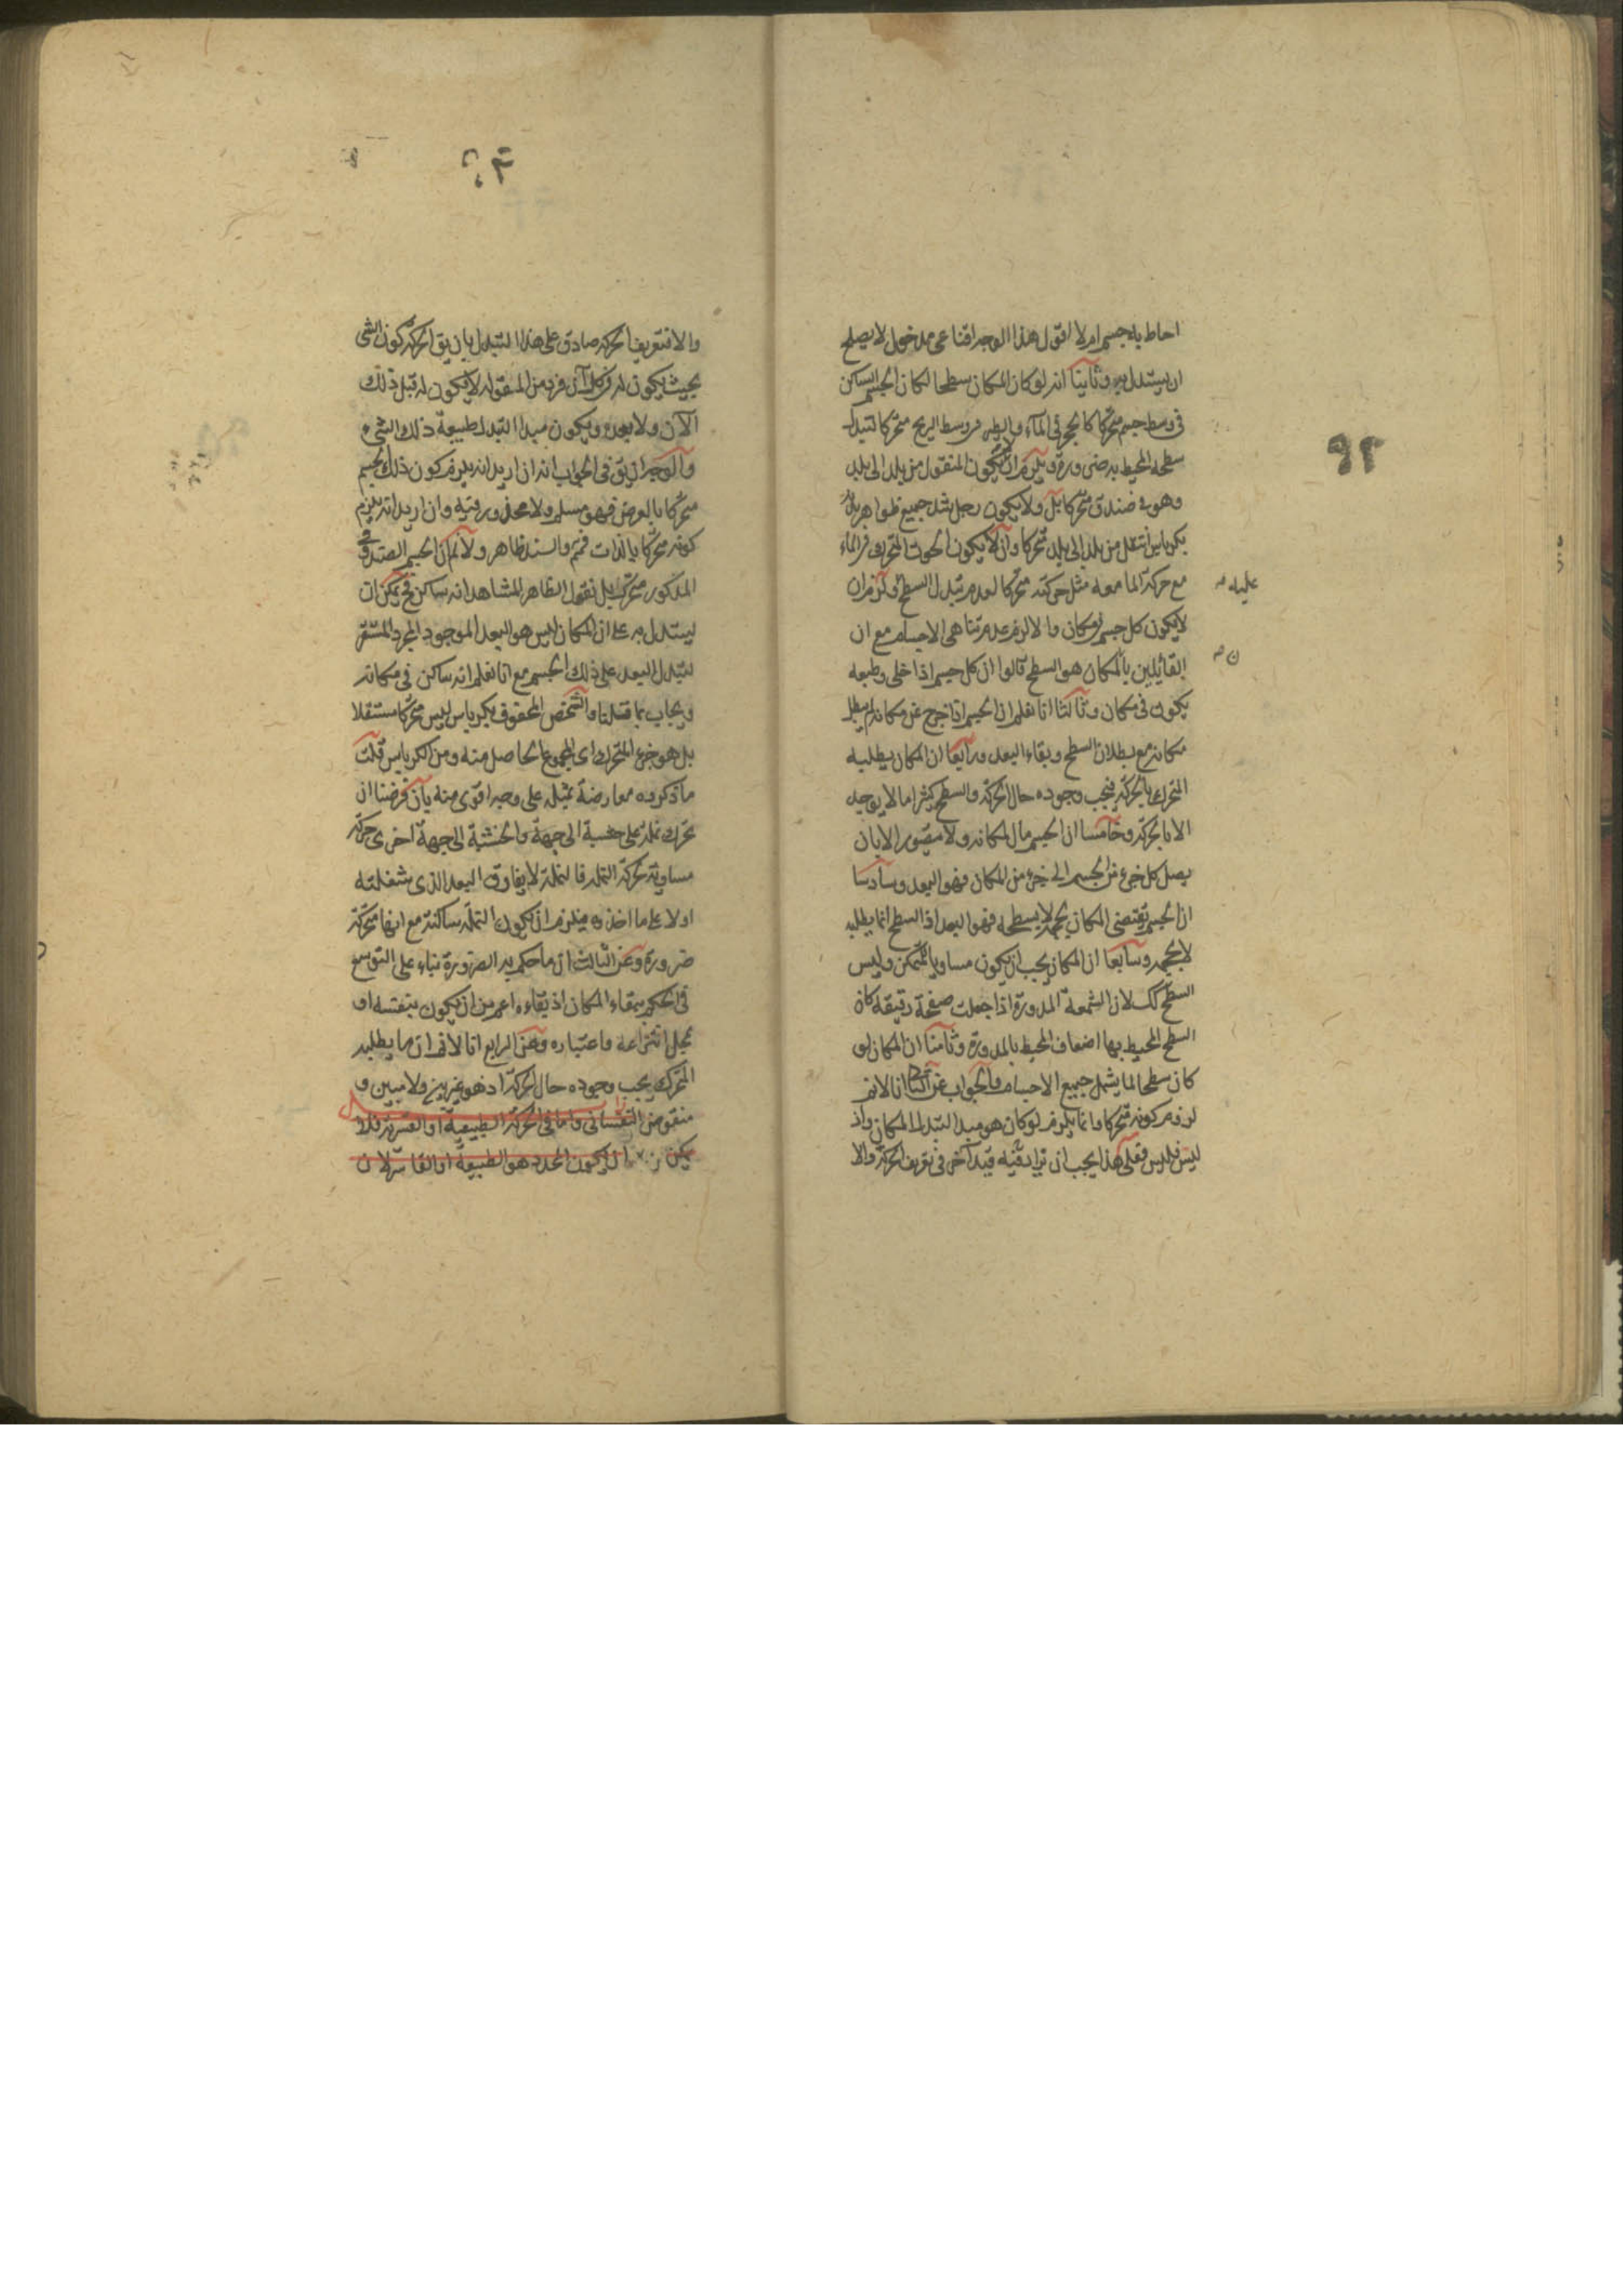 احاط به جسم ام لا اقول هذا الوجه اقناعی مدخول لا يصلح
ان يستدل به وثانيا انه لو كان المكان سطحا لكان الجسم الساكن
فی وسط جسم متحركا كالحجر فی المآء والطير فی وسط الريح متحركا لتبدل
سطحه المحيط به ضرورة ويلزم ان لا يكون المنقول من بلد الی بلد
وهو فی صندوق متحركا بل ولا يكون رجل شد جميع ظواهر بدنه
بكرباس انتقل من بلد الی بلد متحركا وان لا يكون الحوت المتحرك فی الماء
مع حركة الماء معه مثل حركته متحركا لعدم تبدل السطح ولزم ان
عليه
لا يكون كل جسم فی مكان والا لزم عدم تناهی الاجسام مع ان
القائلين بالمكان هو السطح قالوا ان كل جسم اذا خلی وطبعه
ن
يكون فی مكان وثالثا انا نعلم ان الجسم اذا خرج عن مكانه لم يبطل
مكانه مع بطلان السطح وبقاء البعد ورابعا ان المكان يطلبه
المتحرك بالحركة فيجب وجوده حال الحركة والسطح كثيرا ما لا يوجد
الا بالحركة وخامسا ان الجسم مال المكانه ولا يتصور الا بان
يصل كل جزء من الجسم الی جزء من المكان فهو البعد وسادسا
ان الجسم يقتضی المكان بحجمه لا بسطحه فهو البعد اذ السطح انما يطلبه
لا بحجمه وسابعا ان المكان يجب ان يكون مساويا للمتمكن وليس
السطح كك لان الشمعة المدورة اذا جعلت صفحة رقيقة كان
السطح المحيط بها اضعاف المحيط بالمدورة وثامنا ان المكان لو
كان سطحا لما يشمل جميع الاجسام والجواب عن انا لا نم
لزوم كونه متحركا وانما يلزم لو كان هو مبدا لتبدل المكان واذ
ليس فليس فعلی هذا يجب ان يزاد فيه قيد آخر فی تعريف الحركة والا
٩٢
والا فتعريف الحركة صادق علی هذا التبدل بان يق الحركة كون الشی
بحيث يكون له فی كل آن فرد من المقولة لا يكون له قبل ذلك
الآن ولا بعده ويكون مبدا التبدل طبيعة ذلك الشیء
والوجه ان يق فی الجواب انه ان اريد انه يلزم كون ذلك الجسم
متحركا بالعرض فهو مسلم ولا محذور فيه وان اريد انه يلزم
كونه متحركا بالذات فمم والسند ظاهر ولا نم ان الجسم الصندوق
المذكور متحرك بل نقول الظاهر المشاهد انه ساكن فح يمكن ان
يستدل به علی ان المكان ليس هو البعد الموجود المجرد المستقر
لتبدل البعد علی ذلك الجسم مع انا نعلم انه ساكن فی مكانه
ويجاب بما قلنا والشخص المحفوف بكرباس ليس متحركا مستقلا
بل هو جزء المتحرك ای المجموع الحاصل منه ومن الكرباس قلت
ما ذكروه معارضة بمثله علی وجه اقوی منه بان فرضنا ان
تحرك نملة علی خشبة الی جهة والخشبة الی جهة اخری حركة
مساوية لحركة النملة فالنملة لا يفارق البعد الذی شغلته
اولا علی ما اخذوه فيلزم ان يكون النملة ساكنة مع انها متحركة
ضرورة وعن الثالث ان ما حكم به الضرورة بناء علی التوسع
فی الحكم ببقاء المكان اذ بقاءه اعم من ان يكون بنفسه او
بمحل انتزاعه واعتباره وعن الرابع انا لا نم ان ما يطلبه
المتحرك يجب وجوده حال الحركة اذ هو غير بين ولا مبين و
منقوض النفسانی واما فی الحركة الطبيعية او القسرية فلا
يمكن ان يكون المحدد هو الطبيعة او القاسر لان